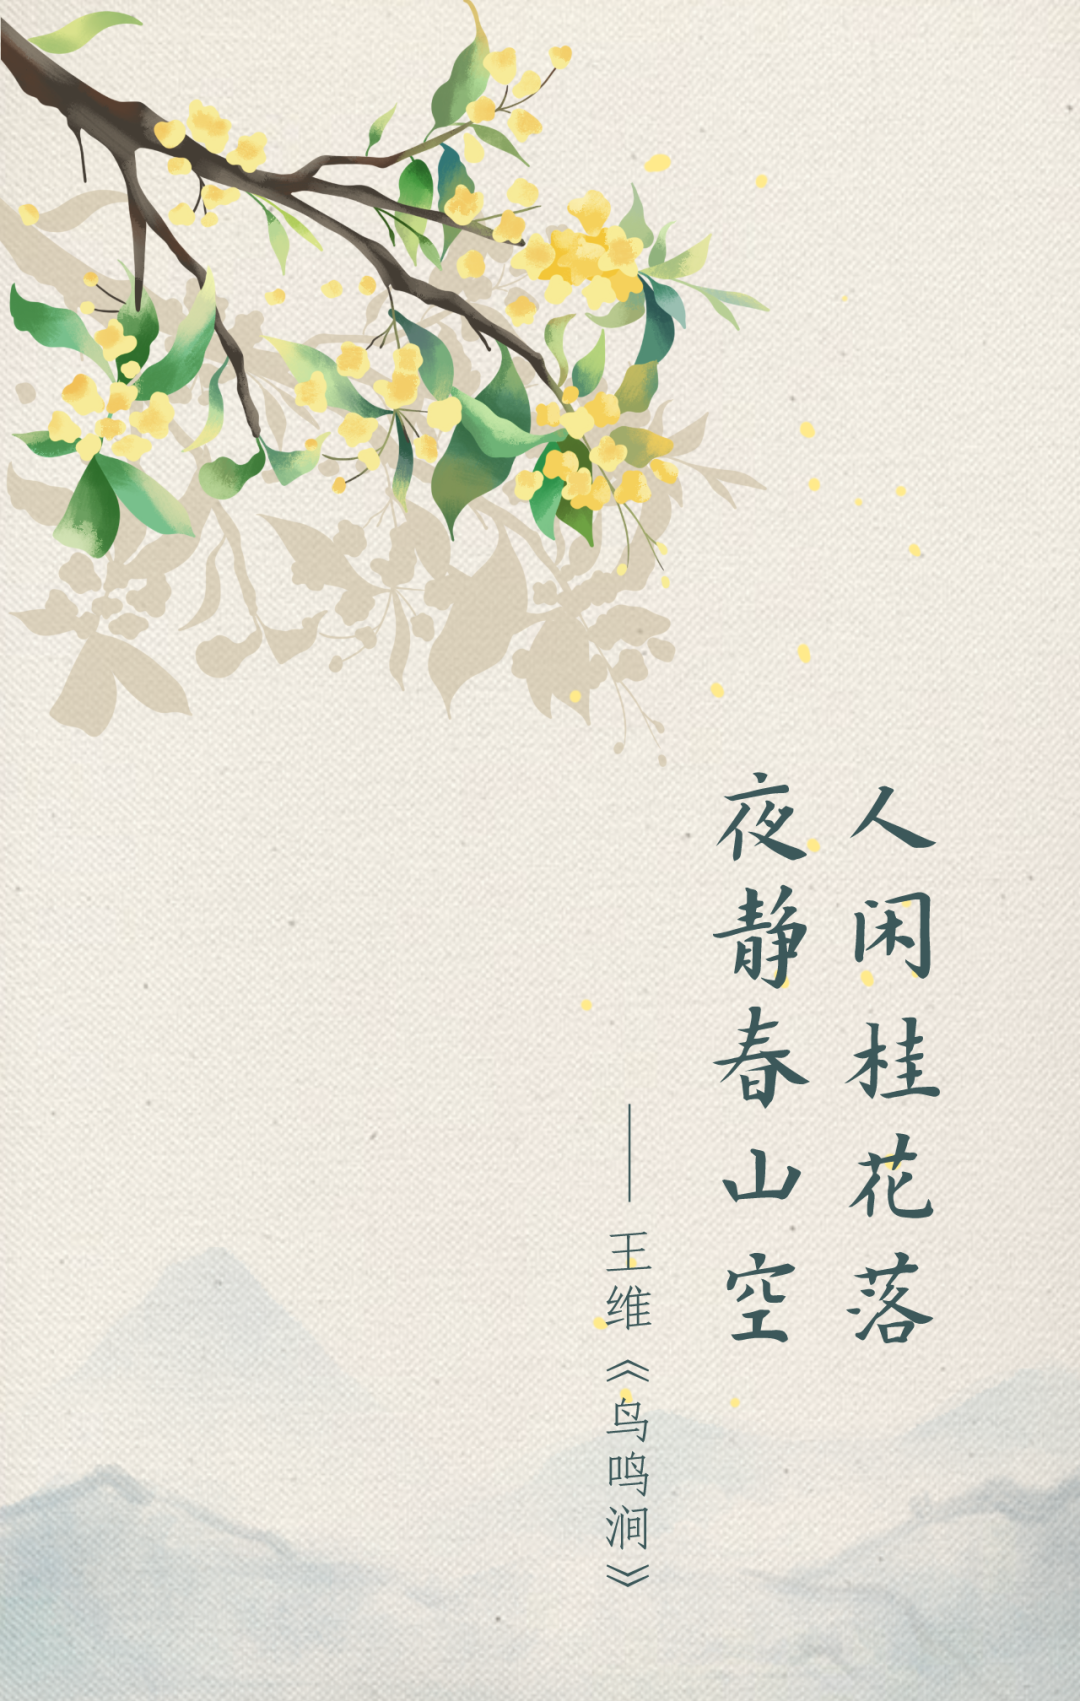 人闲桂花落
夜静春山空
——王维《鸟鸣涧》